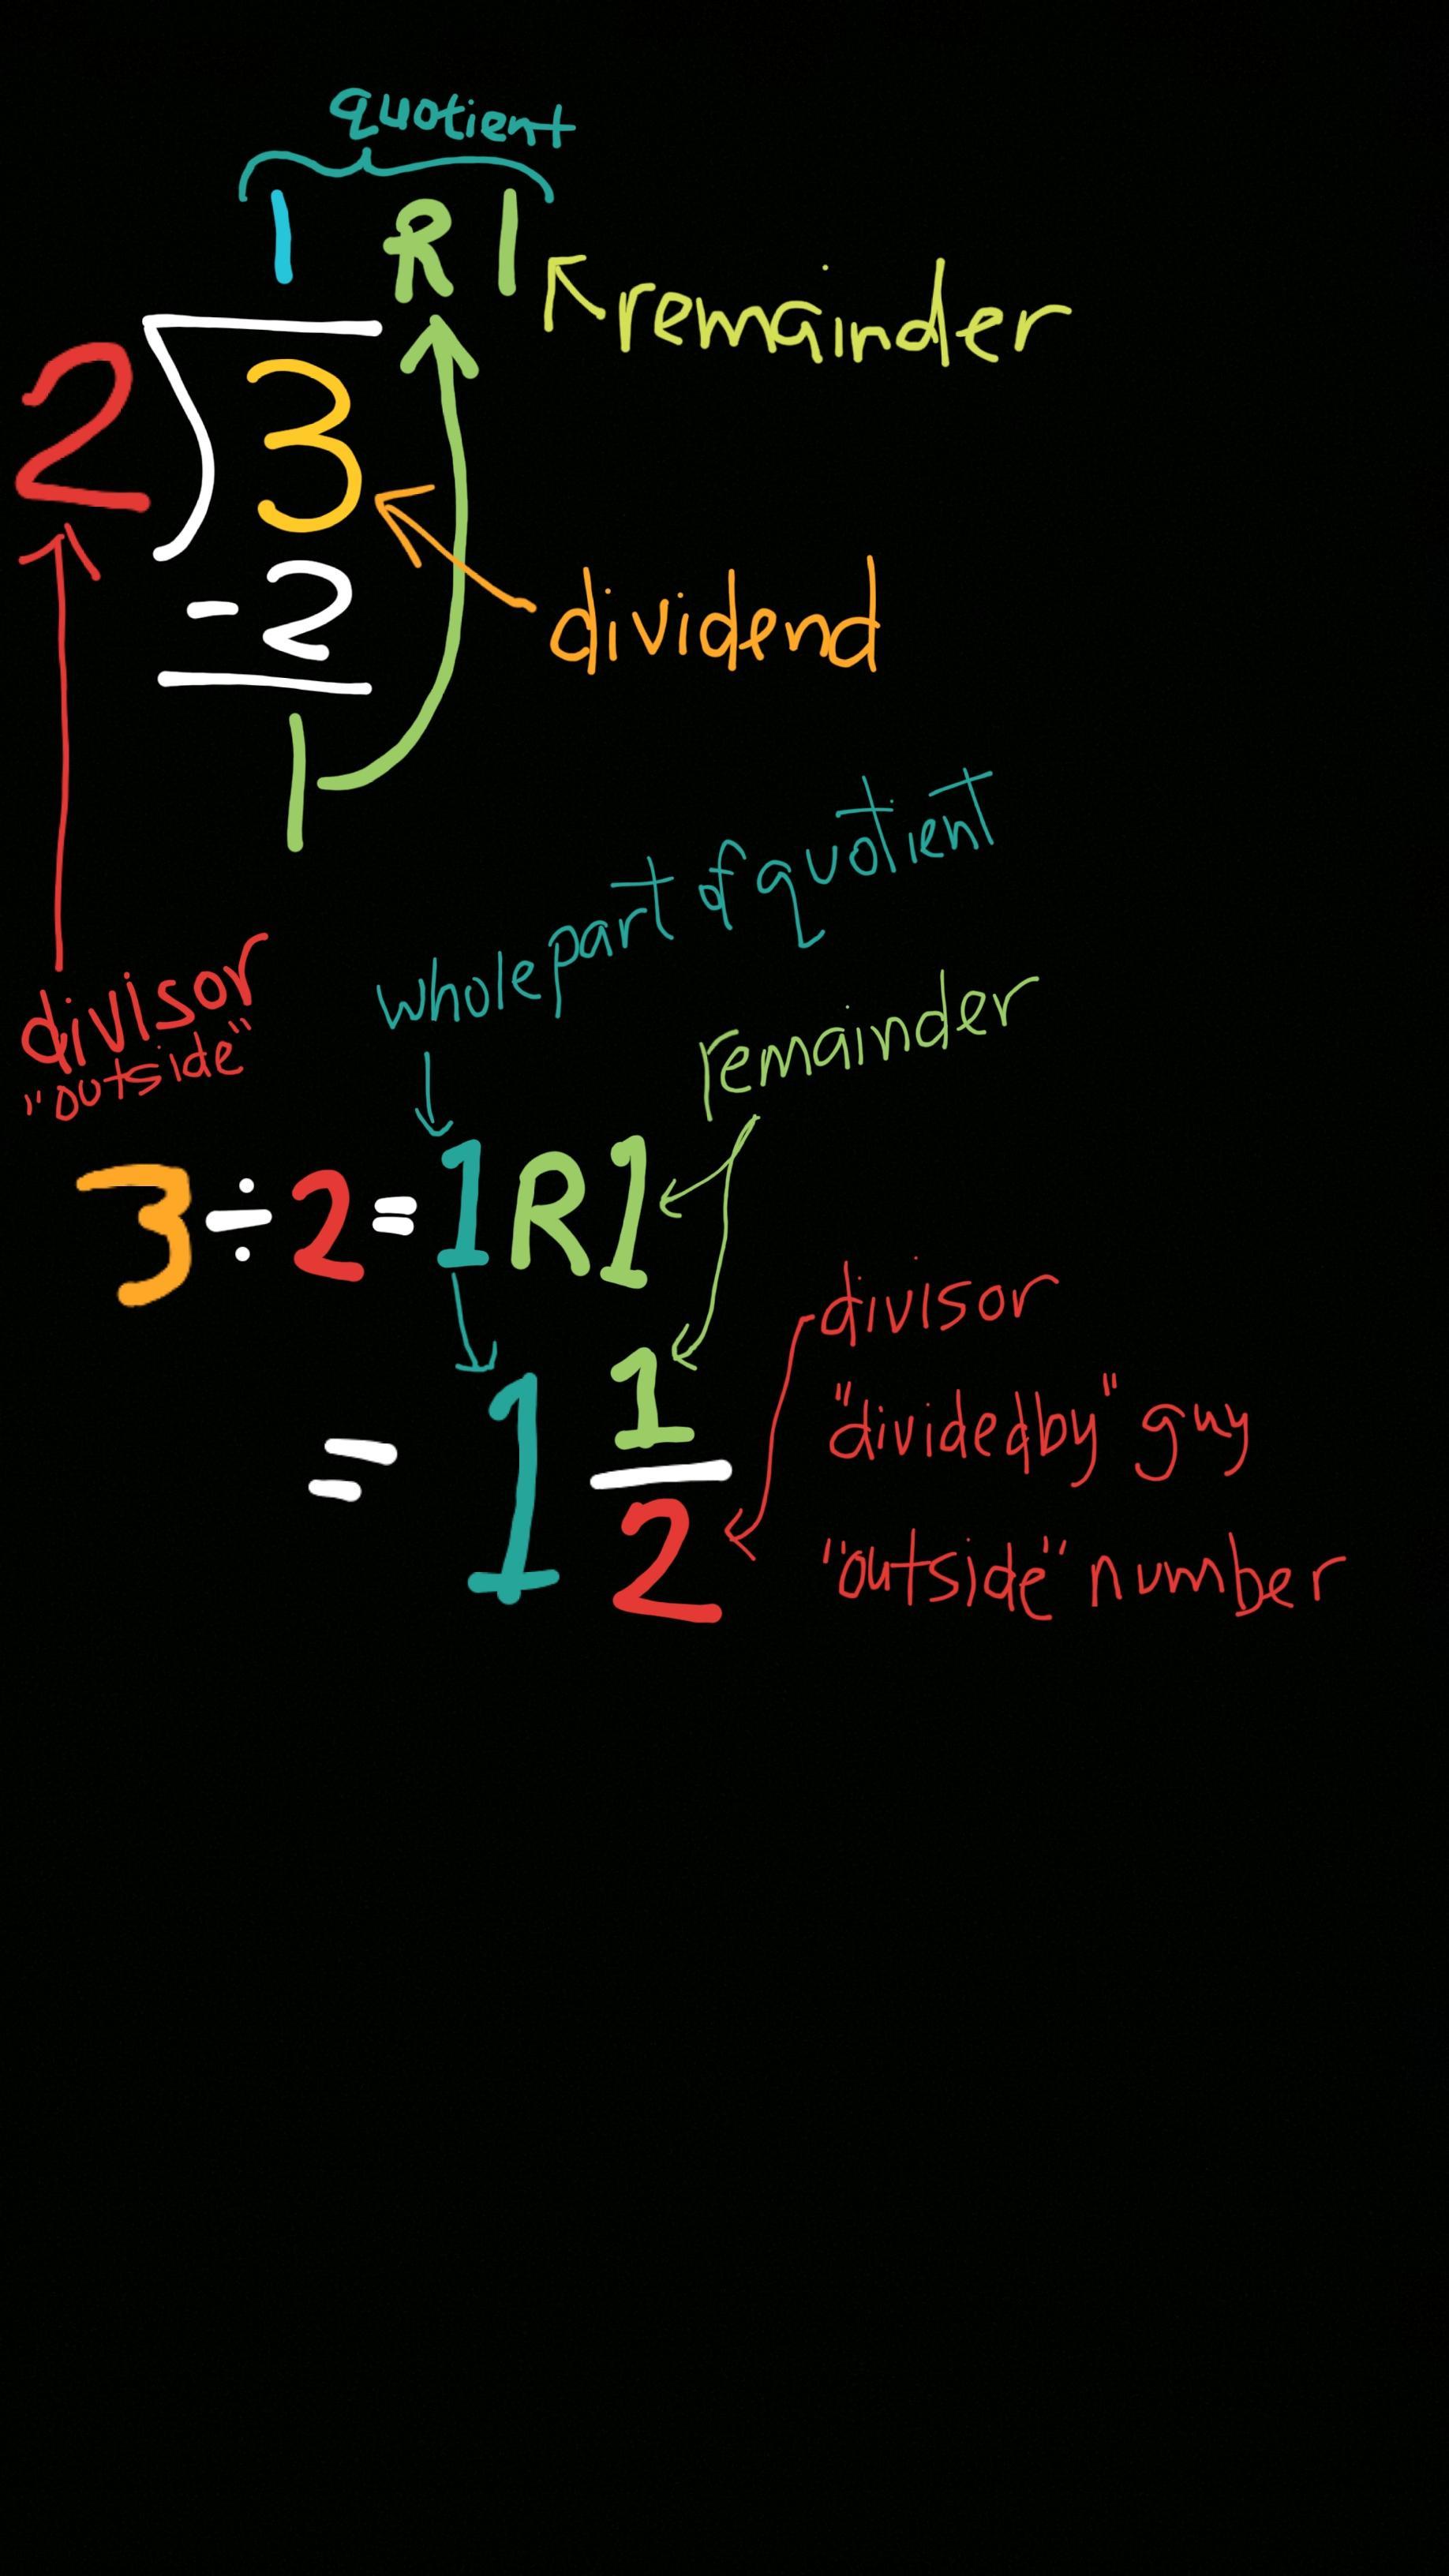 quotient
1 R 1
remainder
2 3
- 2
dividend
1
whole part of quotient
divisor
"outside"
remainder
3 ÷ 2 = 1 R 1
divisor
= 1 1/2
"divided by" guy
"outside" number